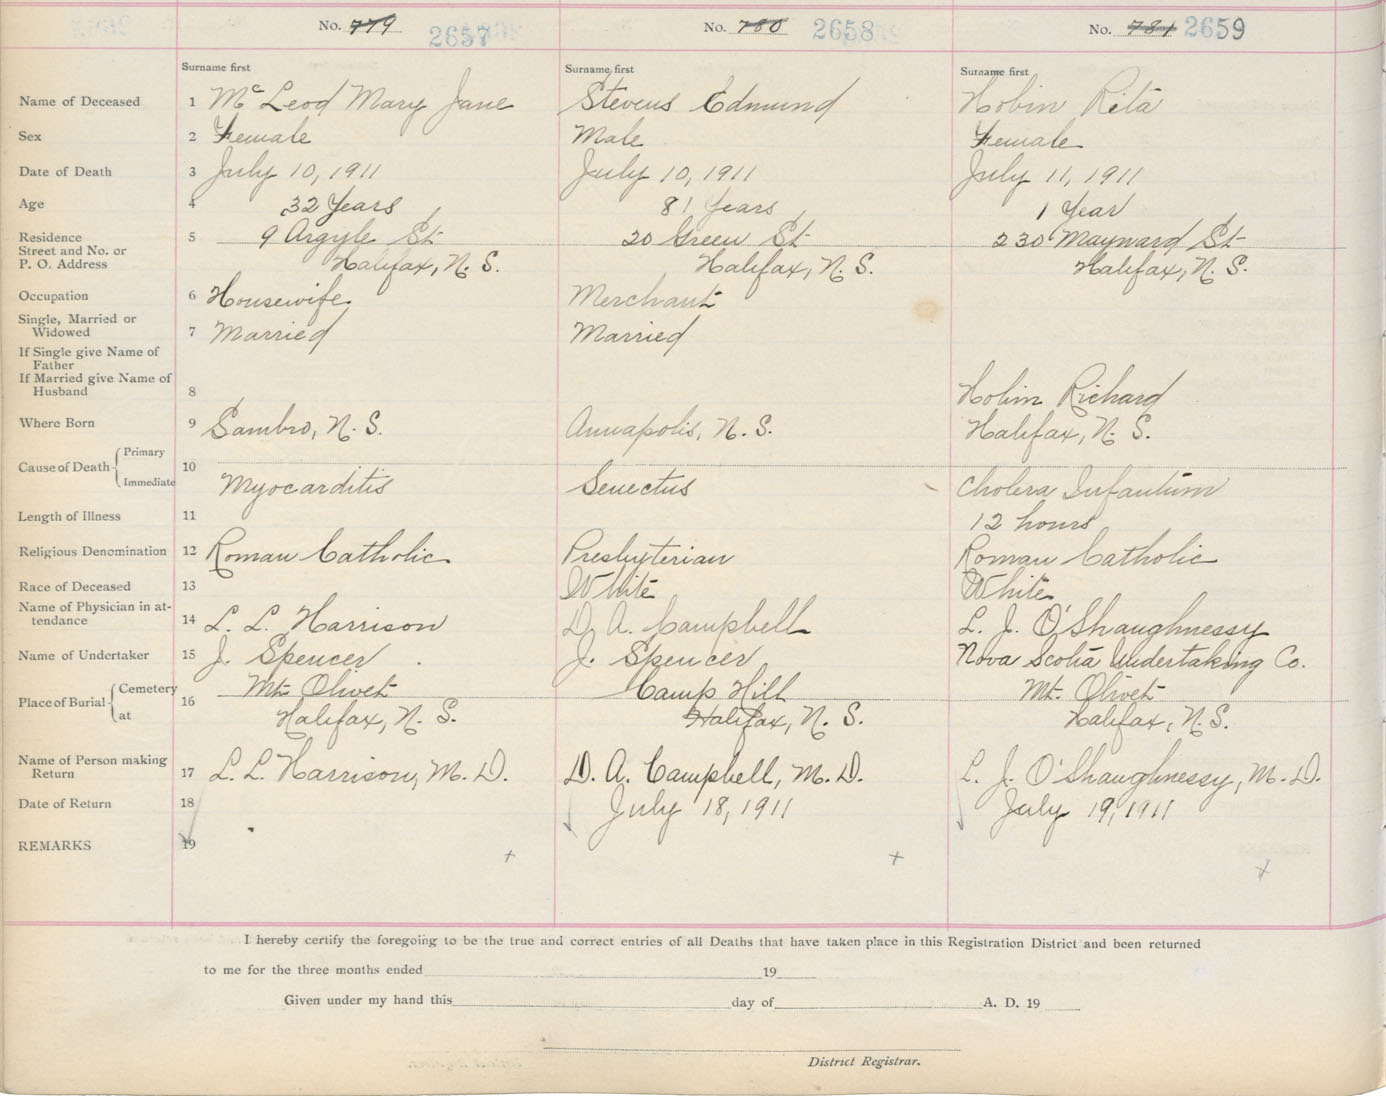 No. 779 2657 No. 780 2658 No. 781 2659
Surname first Surname first Surname first
Name of Deceased 1 McLeod Mary Jane Stevens Edmund Hobin Rita
Sex 2 Female Male Female
Date of Death 3 July 10, 1911 July 10, 1911 July 11, 1911
Age 4 32 Years 81 Years 1 Year
Residence 5 9 Argyle St 20 Green St 230 Maynard St
Street and No. or
P. O. Address Halifax, N. S. Halifax, N. S. Halifax, N. S.
Occupation 6 Housewife Merchant
Single, Married or
Widowed 7 Married Married
If Single give Name of
Father
If Married give Name of
Husband 8 Hobin Richard
Where Born 9 Sambro, N. S. Annapolis, N. S. Halifax, N. S.
Cause of Death Primary 10
Immediate Myocarditis Senectus Cholera Infantum
Length of Illness 11 12 hours
Religious Denomination 12 Roman Catholic Presbyterian Roman Catholic
Race of Deceased 13 White White
Name of Physician in at-
tendance 14 L. L. Harrison D. A. Campbell L. J. O'Shaughnessy
Name of Undertaker 15 J. Spencer J. Spencer Nova Scotia Undertaking Co.
Place of Burial Cemetery 16 Mt. Olivet Camp Hill Mt. Olivet
at Halifax, N. S. Halifax, N. S. Halifax, N. S.
Name of Person making
Return 17 L. L. Harrison, M. D. D. A. Campbell, M. D. L. J. O'Shaughnessy, M. D.
Date of Return 18 July 18, 1911 July 19, 1911
REMARKS 19
I hereby certify the foregoing to be the true and correct entries of all Deaths that have taken place in this Registration District and been returned
to me for the three months ended 19
Given under my hand this day of A. D. 19
District Registrar.